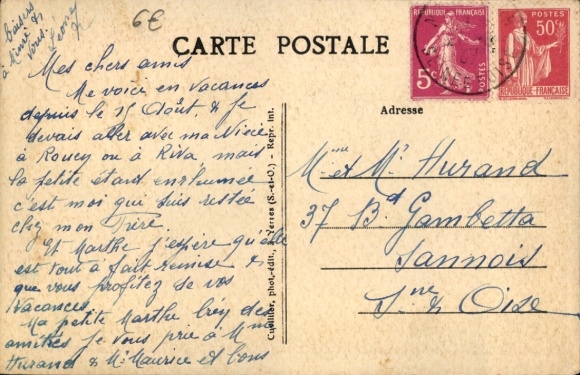 baisers
à Mimi &
vous.
Leony
6€
CARTE POSTALE
RÉPUBLIQUE FRANÇAISE
5c
POSTES
POSTES
50c
RÉPUBLIQUE FRANÇAISE
Adresse
Mes chers amis
Me voici en vacances
depuis le 15 Août, & Je
devais aller avec ma Nièce
à Roucy ou à Riva, mais
la petite étant enrhumée
c'est moi qui suis restée
chez mon Frère.
Et Marthe j'espère qu'elle
est tout à fait remise &
que vous profitez de vos
Vacances.
Ma petite Marthe bien des
amitiés je vous prie à Mme
Hurand & Mr Maurice et bons
Cuvillier, phot.-édit., Yerres (S.-et-O.) - Repr. int.
Mme et Mr Hurand
37 Bd Gambetta
Sannois
Sne & Oise